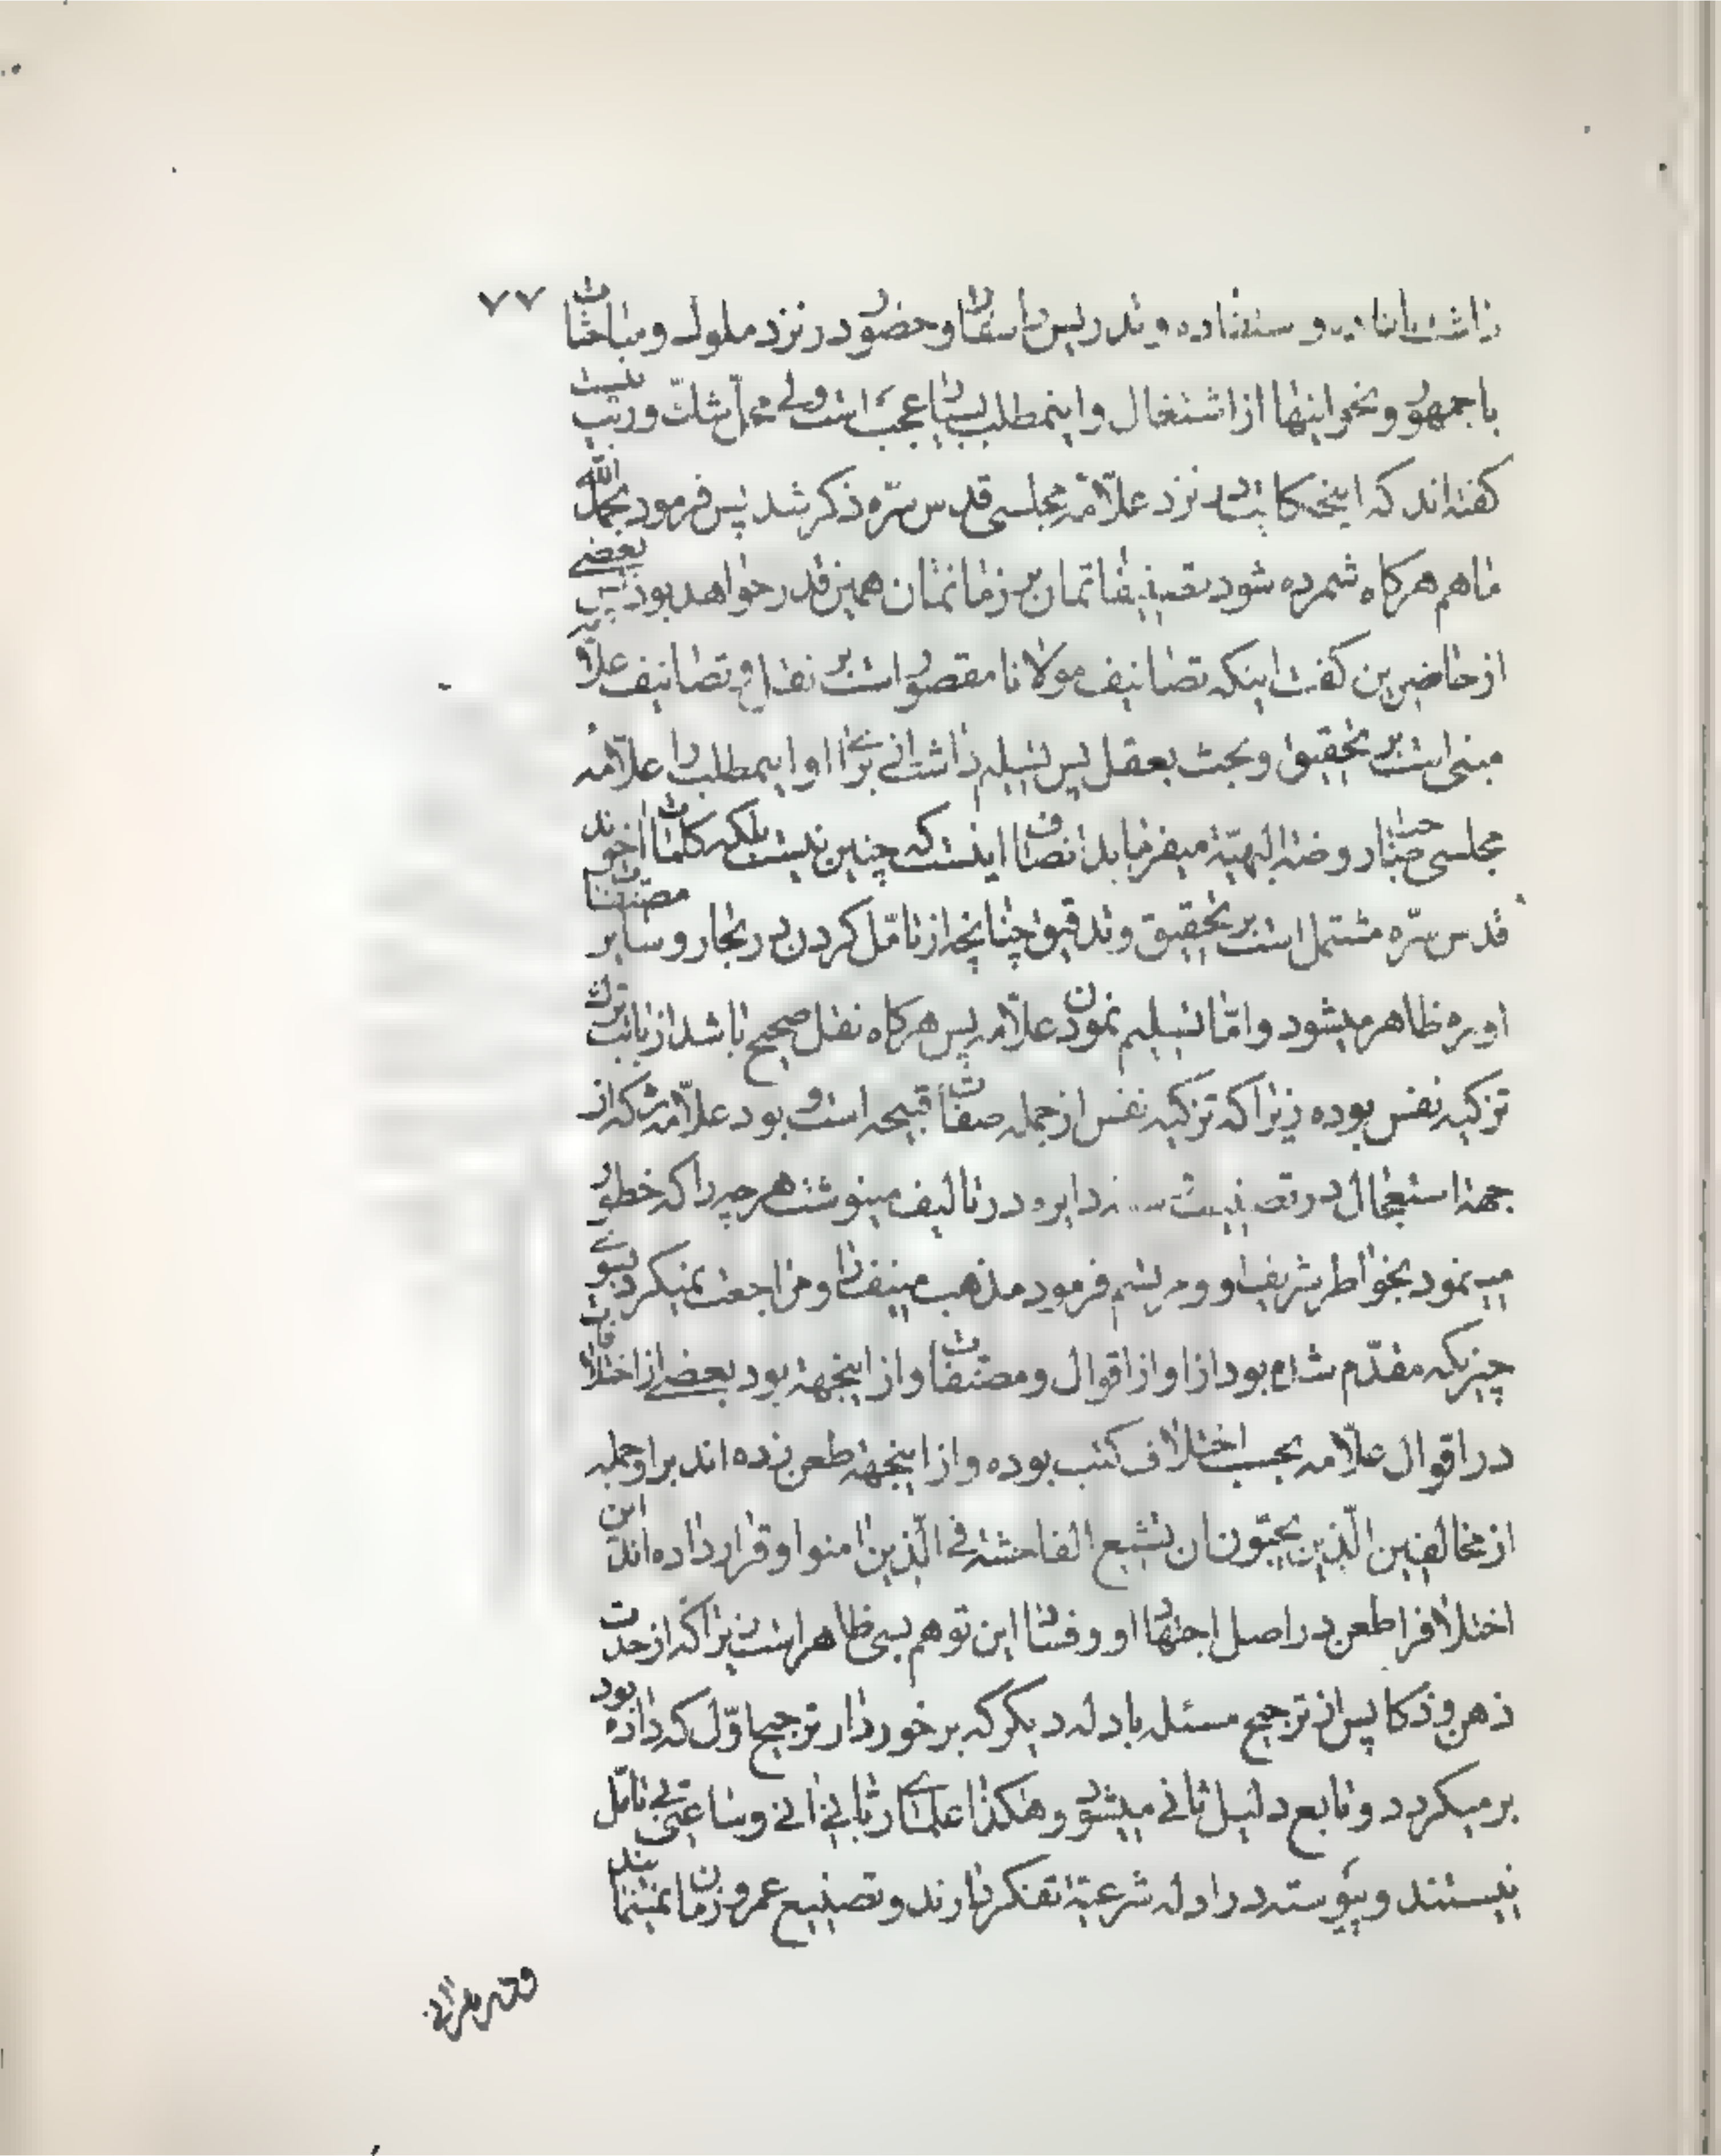 ۷۷
داشت بافاده و استفاده و تدریس و اسفار و حضور در نزد ملوك و مباحثات
با جمهور و نحو اینها از اشتغال و اینمطلب بسیار عجیب است ولی محل شك و ریب نیست
گفته اند که اینحکایت نزد علّامه مجلسی قدس سرّه ذکر شد پس فرمود بحمد الله
ما هم هرکاه شمرده شود تصنیفاتمان بر زمانمان همین قدر خواهد بود پس بعضی
از حاضرین گفت اینکه تصانیف مولانا مقصور است بر نقل و تصانیف علّامه
مبنی است بر تحقیق و بحث بعقل پس تسلیم داشت از برای او اینمطلب را علّامه
مجلسی صاحب روضة البهیّة میفرماید انصاف اینست که چنین نیست بلکه کلمات آخوند
قدس سرّه مشتمل است بر تحقیق و تدقیق چنانچه از تامّل کردن در بحار و سایر مصنفات
اوره ظاهر میشود و امّا تسلیم نمودن علّامه پس هرکاه نقل صحیح باشد از بابت ترك
تزکیه نفس بوده زیرا که تزکیه نفس از جمله صفات قبیحه است و بود علّامه ره که از
جهة استعجال در تصنیف دایره در تالیف مینوشت هر چه را که خطور
میـنمود بخواطر شریف او و مرتسم فرمود مذهب و مراجعت نمیکرد بسوی
چیزیکه مقدّم شده بود از او از اقوال و مصنّفات و از اینجهة بود بعضی از اختلافات
در اقوال علّامه بحسب اختلاف کتب بوده و از اینجهة طعن زده اند بر او جمله
از مخالفین الّذین یحبّون ان تشیع الفاحشة فی الّذین امنوا و قرار داده اند این
اختلافرا طعن در اصل اجتهاد او و فساد این توهم بسی ظاهر است زیرا که از حدت
ذهن و ذکا پس از ترجیح مسئله بادله دیگر که برخوردار ترجیح اوّل که داده بود
برمیکردد و تابع دلیل ثانی میشود و هکذا علمای ربانی آنی و ساعتی بی تامل
نیستند و پیوسته در ادله شرعیّة تفکر دارند و تضییع عمر و زمان نمینمایند